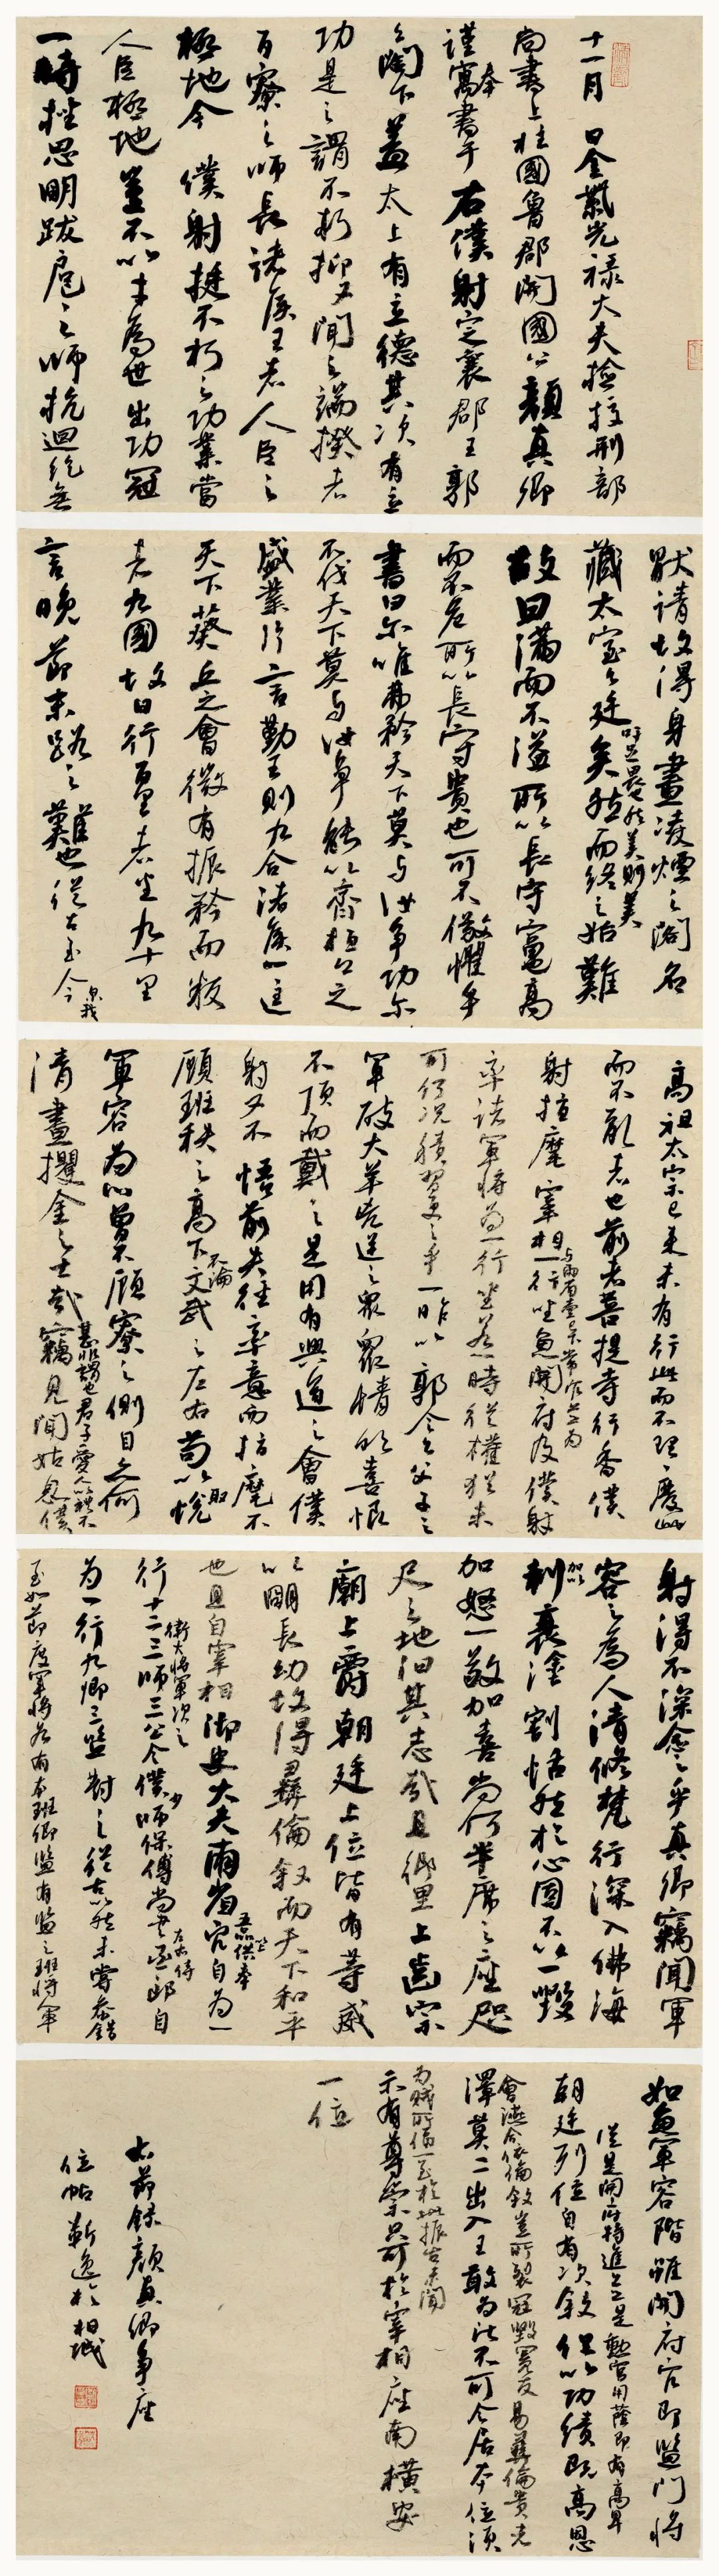 十一月 日金紫光祿大夫檢校刑部
尚書上柱國魯郡開國公顏真卿
謹奉寓書于右僕射定襄郡王郭
公閣下蓋太上有立德其次有立
功是之謂不朽抑又聞之端揆者
百寮之師長諸侯王者人臣之
極地今僕射挺不朽之功業當
人臣極地豈不以才為世出功冠
一時挫思明跋扈之師抗迴紇無
猒請故得身畫凌煙之閣名
藏太室之廷吁足畏也矣然美則美然而終之始難
故曰滿而不溢所以長守富高
而不危所以長守貴也可不儆懼乎
書曰爾唯弗矜天下莫與汝爭功爾
不伐天下莫與汝爭能以齊桓公之
盛業片言勤王則九合諸侯一匡
天下葵丘之會微有振矜而叛
者九國故曰行百里者半九十里
言晚節末路之難也從古至今泊我
高祖太宗已來未有行此而不理廢此
而不亂者也前者菩提寺行香僕
射指麾宰相與兩省臺省已下常參官並為一行坐魚開府及僕射
率諸軍將為一行坐若時從權猶未
可何況積習更之乎一昨以郭令公父子之
軍破犬羊㐫逆之眾眾情欣喜恨
不頂而戴之是用有興道之會僕
射又不悟前失徑率意而指麾不
顧班秩之高下不論文武之左右苟以取悅
軍容為心曾不顧百寮之側目亦何
清晝攫金之士哉甚非謂也君子愛人以禮不竊見聞姑息僕
射得不深念之乎真卿竊聞軍
容之為人清修梵行深入佛海
加以利衰塗割恬然於心固不以一毀
加怒一敬加喜尚何半席之座咫
尺之地汩其志哉且鄉里上齒宗
廟上爵朝廷上位皆有等威
以明長幼故得彝倫敘而天下和平
也且自宰相御史大夫兩省五品供奉官自為一
行十二衛大將軍次之三師三公令僕少師保傅尚書左右丞侍郎自
為一行九卿三監對之從古以然未嘗參錯
至如節度軍將各有本班卿監有卿監之班將軍
如魚軍容階雖開府官即監門將
從是開府特進並是勳官用蔭即有高卑
朝廷列位自有次敘但以功績既高恩
會讌合依倫敘豈可裂冠毀冕反易彝倫貴者
澤莫二出入王敢為比不可令居本位須
為賊所偪一至於此振古未聞
示有尊崇只可於宰相座南橫安
一位
右節錄顏真卿爭座
位帖 靳逸於相城